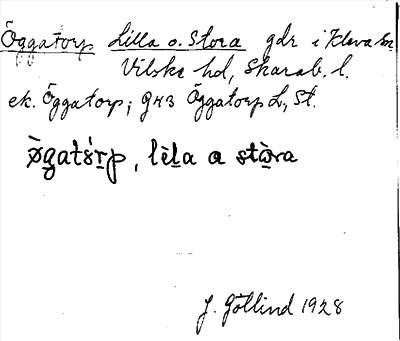 Öggatorp Lilla o. Stora gdr i Kleva sn
Vilske hd, Skarab. l.
ek. Öggatorp; g43 Öggatorp L, St.
ø̀gató̤rp, lìla a stòra
J. Götlind 1928